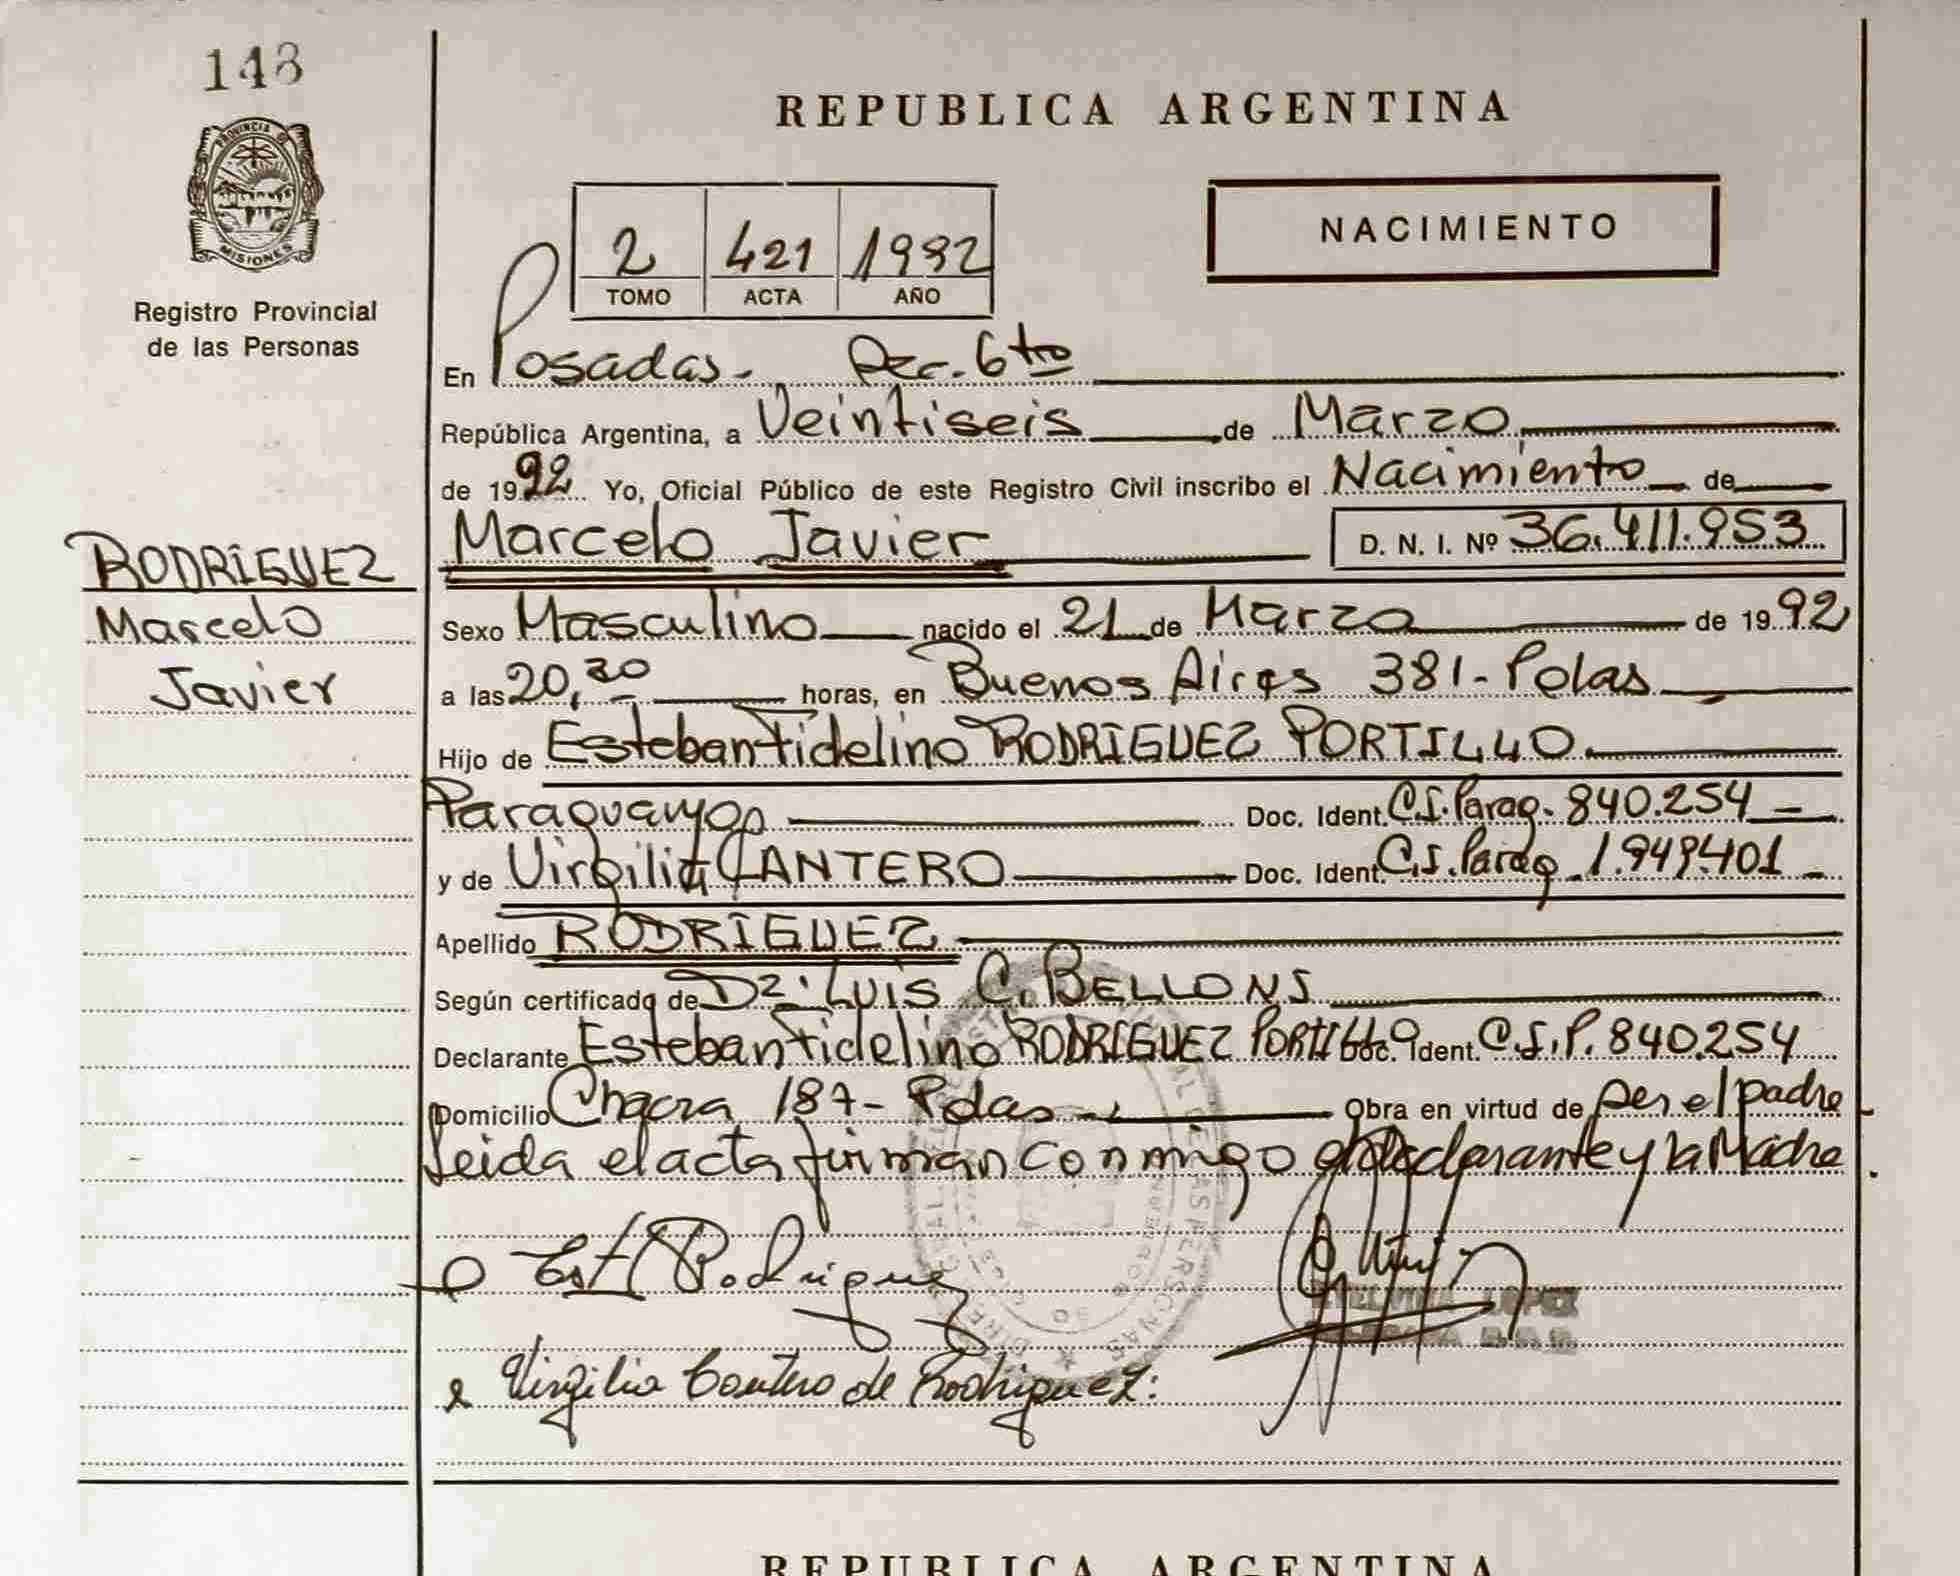 148
PROVINCIA DE
MISIONES
Registro Provincial
de las Personas
REPUBLICA ARGENTINA
NACIMIENTO
2 421 1992
TOMO ACTA AÑO
En Posadas - Sec. 6to
República Argentina, a Veintiseis de Marzo
de 1992 Yo, Oficial Público de este Registro Civil inscribo el Nacimiento de
Marcelo Javier D. N. I. Nº 36.411.953
RODRIGUEZ
Marcelo
Javier
Sexo Masculino nacido el 21 de Marzo de 1992
a las 20,30 horas, en Buenos Aires 381 - Pdas
Hijo de Esteban Fidelino RODRIGUEZ PORTILLO
Paraguayo Doc. Ident. C.I. Parag. 840.254
y de Virgilia CANTERO Doc. Ident. C.I. Parag 1.949.401
Apellido RODRIGUEZ
Según certificado de Dr. LUIS C. BELLONI
Declarante Esteban Fidelino RODRIGUEZ PORTILLO Doc. Ident. C.I.P. 840.254
Domicilio Chacra 187 - Pdas - Obra en virtud de ser el padre
Leida el acta firman conmigo el Declarante y la Madre
Est Rodriguez
LOPEZ
Virgilia Cantero de Rodriguez:
REPUBLICA ARGENTINA